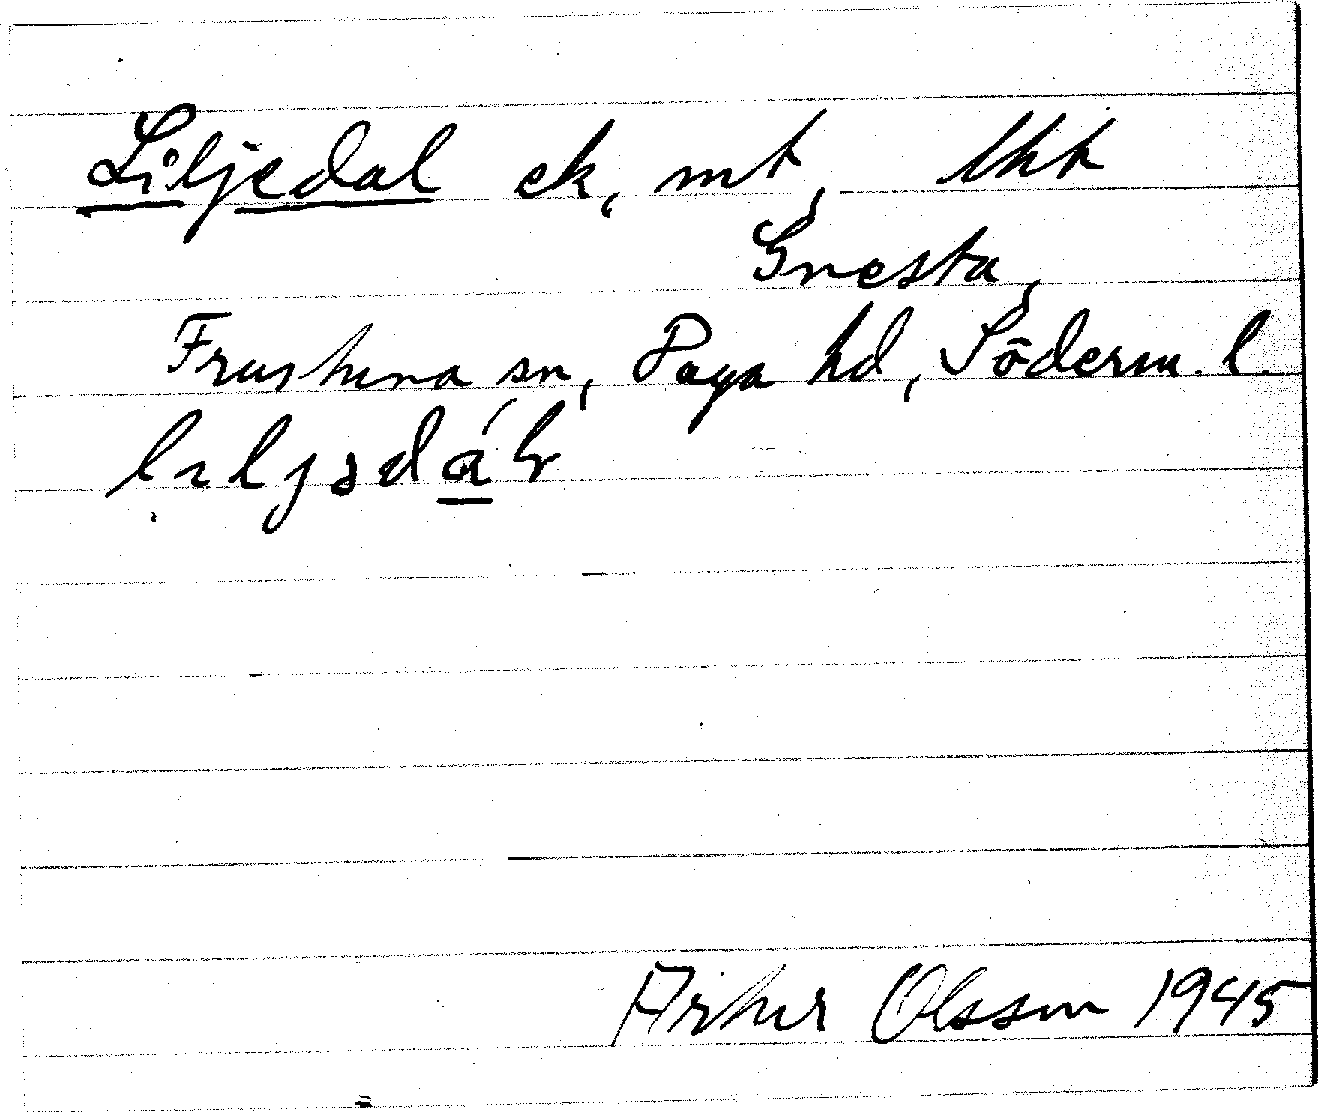 Liljedal ek, mt,
Gnesta,
Frustuna sn, Daga hd, Söderm. l.
Artur Olsson 1945